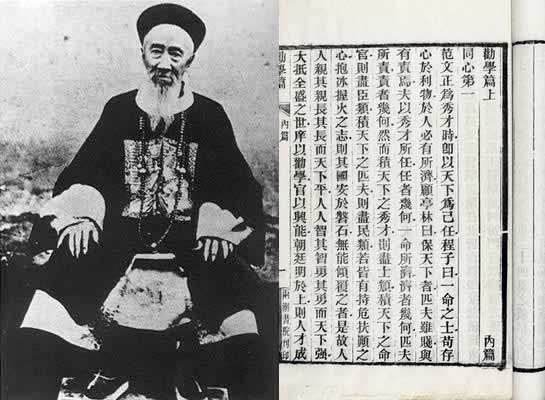 勸學篇上 內篇
同心第一
范文正爲秀才時即以天下爲己任程子曰一命之士苟存
心於利物於人必有所濟顧亭林曰保天下者匹夫雖賤與
有責焉夫以秀才所任任者幾何一命所濟濟者幾何匹夫
所責責者幾何然而積天下之秀才則盡士類積天下之命
官則盡臣類積天下之匹夫則盡民類若皆有持危扶顚之
心抱冰握火之志則其國安於磐石無能傾覆之者是故人
人親其親長其長而天下平人人智其智勇其勇而天下强
大抵全盛之世庠以勸學官以興能朝廷明於上則人才成
勸學篇 內篇 一 兩湖書院刊印